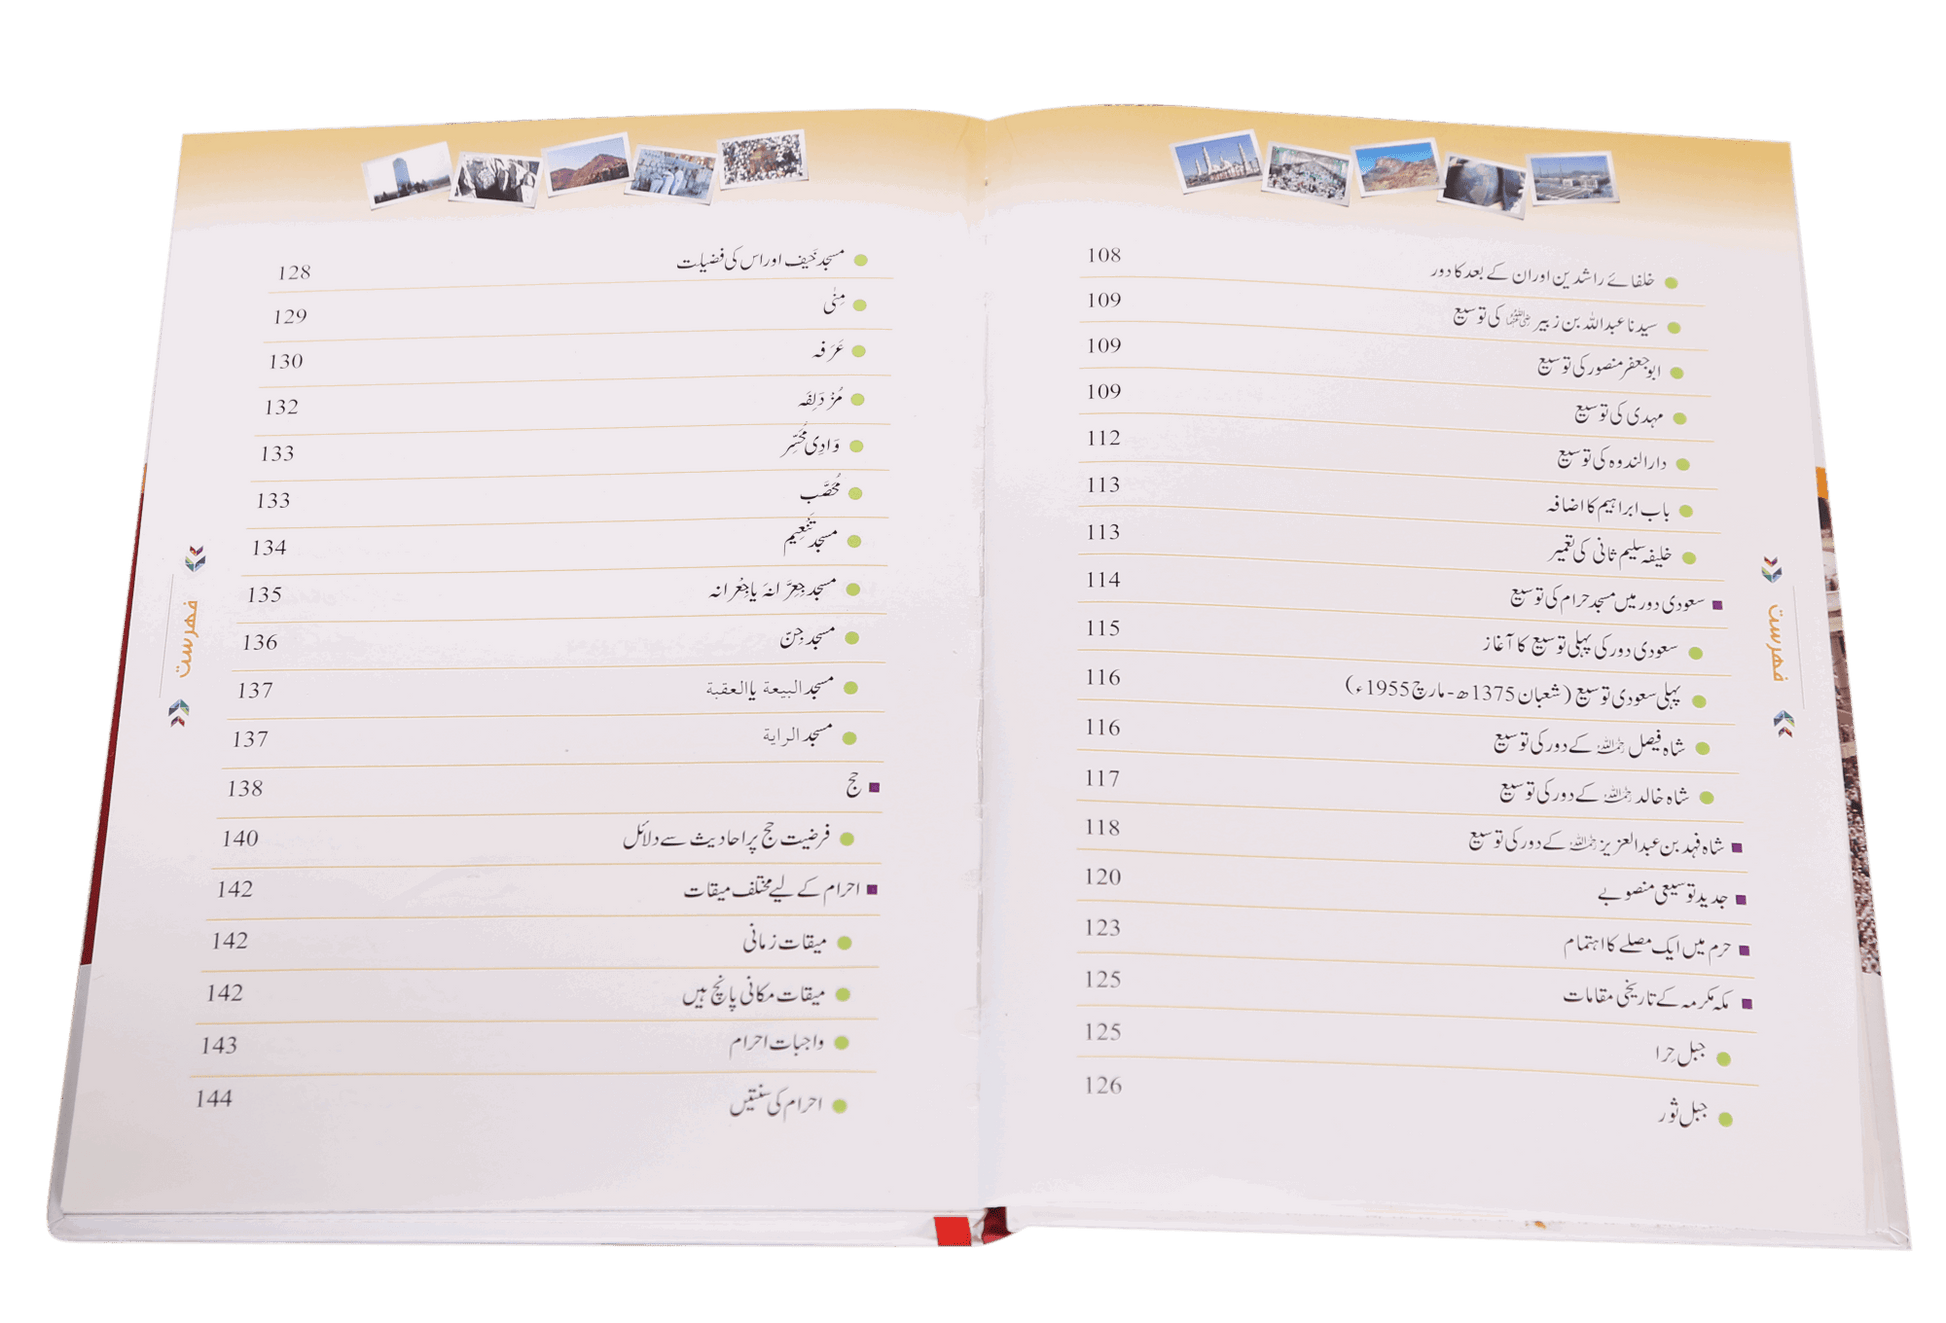 خلفائے راشدین اور ان کے بعد کا دور 108
سیدنا عبداللہ بن زبیر رضی اللہ عنہما کی توسیع 109
ابو جعفر منصور کی توسیع 109
مہدی کی توسیع 109
دارالندوہ کی توسیع 112
باب ابراہیم کا اضافہ 113
خلیفہ سلیم ثانی کی تعمیر 113
سعودی دور میں مسجد حرام کی توسیع 114
سعودی دور کی پہلی توسیع کا آغاز 115
پہلی سعودی توسیع (شعبان 1375ھ - مارچ 1955ء) 116
شاہ فیصل رحمہ اللہ کے دور کی توسیع 116
شاہ خالد رحمہ اللہ کے دور کی توسیع 117
شاہ فہد بن عبدالعزیز رحمہ اللہ کے دور کی توسیع 118
جدید توسیعی منصوبے 120
حرم میں ایک مصلے کا اہتمام 123
مکہ مکرمہ کے تاریخی مقامات 125
جبل حِرا 125
جبل ثور 126
فہرست
مسجد خَیف اور اس کی فضیلت 128
مِنٰی 129
عَرَفہ 130
مُزْدَلِفَہ 132
وَادِی مُحَسِّر 133
مُحَصَّب 133
مسجد تَنْعِیم 134
مسجد جِعِرَّانَہ یا جِعْرانہ 135
مسجد جِنّ 136
مسجد البیعة یا العقبة 137
مسجد الرایة 137
حج 138
فرضیت حج پر احادیث سے دلائل 140
احرام کے لیے مختلف میقات 142
میقات زمانی 142
میقات مکانی پانچ ہیں 142
واجبات احرام 143
احرام کی سنتیں 144
فہرست